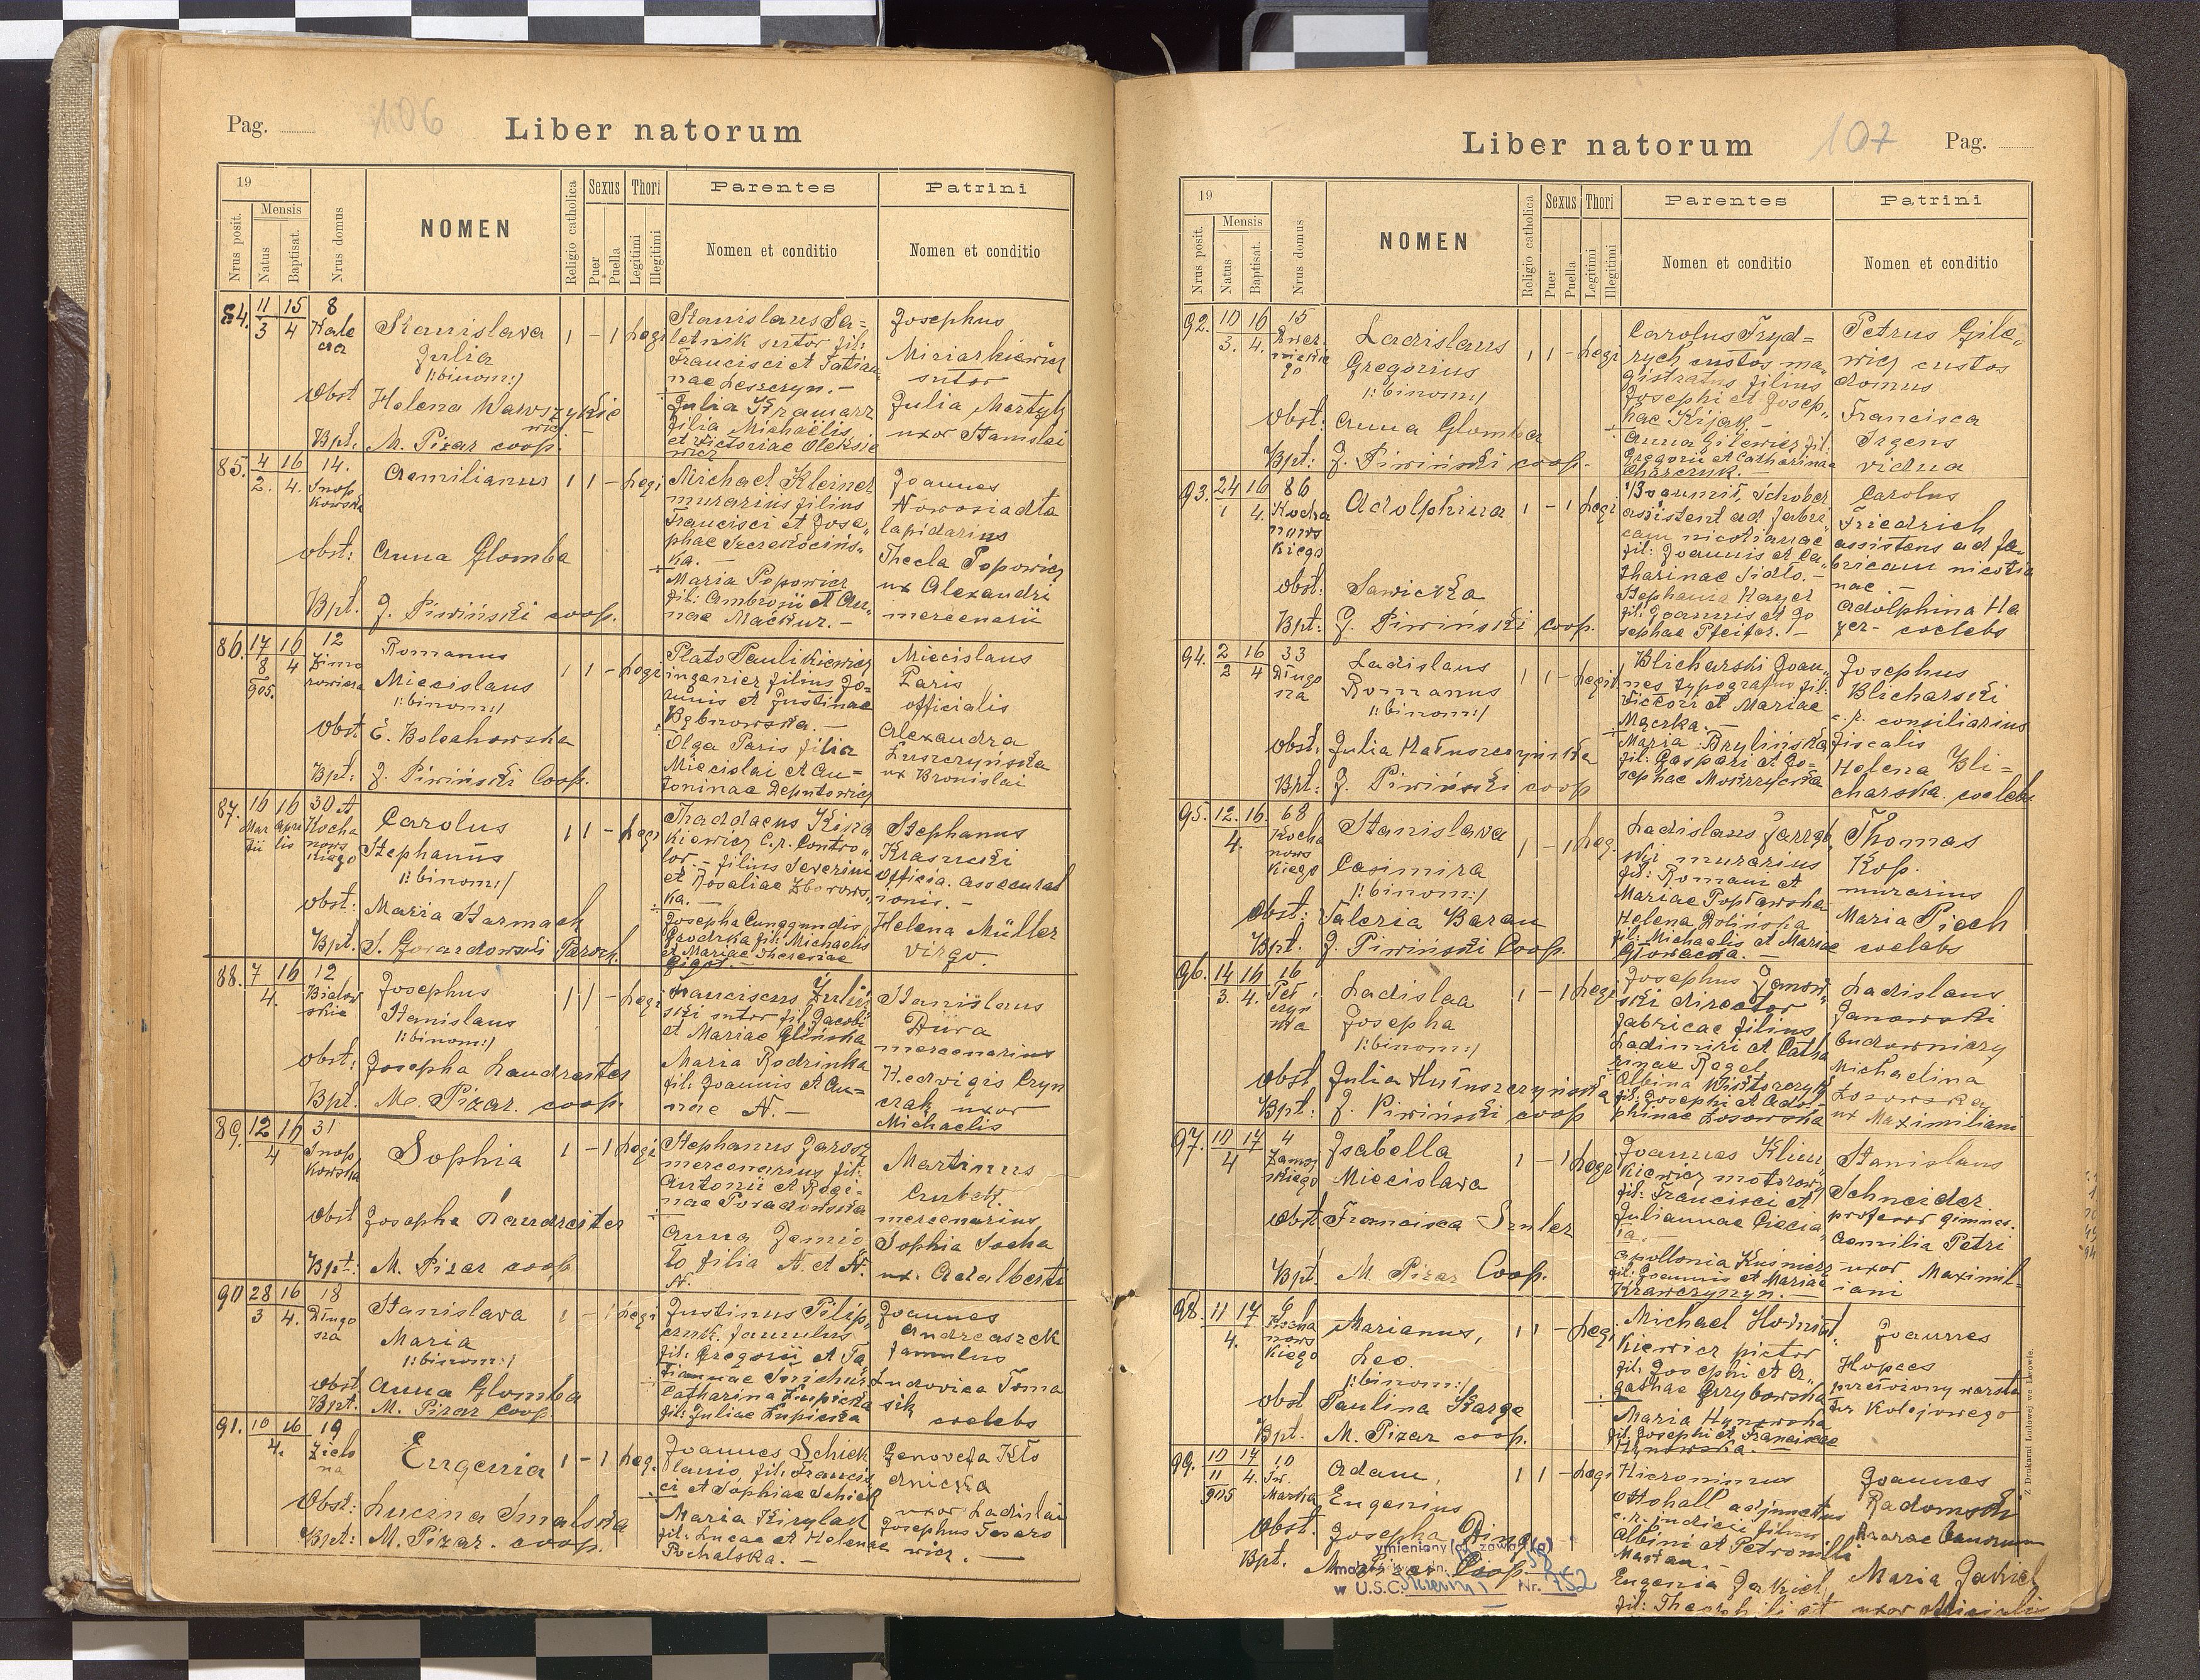 Pag. 106 Liber natorum
19 Nrus posit. Mensis Natus Baptisat. Nrus domus NOMEN Religio catholica Sexus Puer Puella Thori Legitimi Illegitimi Parentes Nomen et conditio Patrini Nomen et conditio
84. 11/3 15/4 8
Stanislava
Julia
|:binom:|
Obst Helena
Bpt: M. Pizar coop.
1 - 1 Legi
Stanislaus Sa=
letnik sutor fil:
Francisci et Tatian
nae Leszczyn. -
Julia Kramarz
filia Michaëlis
et Victoriae Oleksie
wicz
Josephus
sutor
Julia Martyk
uxor Stanislai
85. 4/2. 16/4. 14.
Snop
kowska
Aemilianus
obst: Anna Glomba
Bpt. J. Piwiński coop.
1 1 - Legi
Michael Kleiner
murarius filius
Francisci et Jose„
phae
ka. -
Maria Popowicz
fil: Ambrosii et An„
nae Mackur. -
Joannes
Nowosiadła
lapidarius
Thecla Popowicz
ux Alexandri
mercenarii
86. 17/8 905. 16/4 12
Zimo
rowicza
Romanus
Miecislaus
|:binom:|
Obst E. Bolechowska
Bpt: J. Piwiński Coop.
1 1 - Legi
Plato Paulikiewicz
ingenier filius Jo=
annis et Justinae
Olga Paris filia
Miecislai et An=
toninae Deputowicz
Miecislaus
Paris
officialis
Alexandra
Łuszczyńska
ux Bronislai
87. 16 Mar tii 16 Apri lis 30 A
Kocha
nows
kiego
Carolus
Stephanus
|:binom:|
obst: Maria Starmach
Bpt. S. Gwardowski Paroch.
1 1 - Legi
Thaddaeus
kiewicz C.r. Contro„
lor. - filius Severini
et Rosaliae Zborows„
ka. -
Josepha Cunegundis
fil: Michaelis
et Mariae Theresiae
Stephanus
Krasucki
Officia. assecurat
ionis. -
Helena Müller
virgo.
88. 7/4. 16 12
Bielow
skie
Josephus
Stanislaus
|:binom:|
Obst: Josepha Landreiter
Bpt. M. Pizar. coop.
1 1 - Legi
Franciscus
ski sutor fil. Jacobi
et Mariae Glińska
Maria Rodzinka
fil: Joannis et An=
nae N. -
Stanislaus
Dūra
mercenarius
Hedvigis Cryn
czak uxor
Michaelis
89. 12/4 16 31
Snop
kowska
Sophia
Obst Josepha Landreiter
Bpt: M. Pizar coop
1 - 1 Legi
Stephanus Jarosz
mercenarius fil:
Antonii et Regi=
nae Posadowska
Anna Jamio
to filia N. et N.
N.
Martinus
mercenarius
Sophia Socha
ux. Adalberti
90 28/3 16/4. 18
Długo
sza
Stanislava
Maria
|:binom:|
obst Anna Glomba
Bpt. M. Pizar Coop.
1 - 1 Legi
Justinus Pilip„
czuk. famulus
fil: Gregorii et Ta
Catharina Łupicka
fil: Juliae Łupicka
Joannes
Andreaszek
famulus
Ludovica Toma
sik coelebs
91. 10/4. 16 19
Zielo
na
Eugenia
Obst: Lucina Smalska
Bpt: M. Pizar. coop.
1 - 1 Leg.
Joannes Schick
lanio, fil: Francis
ci et Sophiae Schick
Maria Kirylak
fil: Lucae et Helenae
Pochalska. -
Genovefa Kło
dnicka
uxor Ladislai
Josephus Tesaro
wicz. -
Liber natorum 107 Pag.
19 Nrus posit. Mensis Natus Baptisat. Nrus domus NOMEN Religio catholica Sexus Puer Puella Thori Legitimi Illegitimi Parentes Nomen et conditio Patrini Nomen et conditio
92. 10/3. 16/4. 15
Ladislaus
Gregorius
|:binom:|
Obst: Anna Glomba
Bpt: J. Piwiński coop.
1 1 - Legi
Carolus Fryd=
rych custos ma„
gistratus filius
Josephi et Josep„
hae Kijak. -
Anna Gilewicz fil.
Gregorii et Catharinae
Petrus Gile„
wicz custos
domus
Francisca
Irgens
vidua
93. 24/1 16/4. 86
Kocha
nows
kiego
Adolphina
Obst: Sawicka
Bpt: J. Piwiński coop.
1 - 1 Legi
Bogumił Schober
assistent ad fabri„
cam nicotianae
fil: Joannis et Ca„
tharinae Sidło. -
Stephania Hayer
fil: Joannis et Jo
sephae Pfeifer. -
Carolus
Friedrich
assistens ad fa„
bricam nicotia
nae -
Adolphina Ha
yer - coelebs
94. 2/2 16/4 33
Długo
sza
Ladislaus
Romanus
|:binom:|
obst: Julia Hałuszczyńska
Bpt: J. Piwiński coop
1 1 - Legit
Blicharski Joan„
nes typografus fil:
Victori et Mariae
Mączka. -
Maria Brylińska
fil: Gaspari et Jo=
sephae Moszczycka
Josephus
Blicharski
c. r. consiliarius
fiscalis
Helena Bli=
charska. coelebs
95. 12./4. 16. 68
Kocha
nows
kiego
Stanislava
Casimira
|:binom:|
Obst: Valeria Baran
Bpt. J. Piwiński Coop.
1 - 1 Leg.
Ladislaus
murarius
fil: Romani et
Mariae Popławska
Helena Dolińska
fil. Michaelis et Mariae
Głowacka. -
Thomas
Kop.
murarius
Maria Piech
coelebs
96. 14/3. 16/4. 16
Peł
czyn
ska
Ladislaa
Josepha
|:binom:|
Obst Julia Hałuszczyńska
Bpt: J. Piwiński coop
1 - 1 Legi
Josephus Janow„
ski director
fabricae filius
Ladimiri et Catha
rinae Rogel
Albina
fil: Josephi et Adol=
phinae Łosowska
Ladislaus
Janowski
budowniczy
Michaelina
Łosowska
ux Maximiliani
97. 10/4 17 4
Zamoy
skiego
Isabella
Miecislava
Obst Francisca
Bpt. M. Pizar Coop.
1 - 1 Legi
Joannes Klim„
kiewicz motorowy
fil: Francisci et
Juliannae
Apollonia
fil: Joannis et Mariae
Krawczyszyn. -
Stanislaus
Schneider
profesor gimnas.
Aemilia Petri
uxor Maximil=
iani
98. 11/4. 17
Kocha
nows
kiego
Marianus,
Leo.
|:binom:|
obst Paulina Karge
Bpt. M. Pizar coop.
1 1 - Legi
Michael
kiewicz pictor
fil: Josephi et A„
gathae Grzybowska
Maria Hynowska
fil. Josephi et Franciscae
Hynowska. -
Joannes
Hupces
warsta
tu kolejowego
99. 10/11 905 17/4. 10
Św.
Marka
Adam,
Eugenius
Obst. Josepha
Bpt. M. Pizar Coop.
1 1 - Legi
Hieronimus
Ottohall adjunctus
c.r. judicii filius
Albini et Petronilli
Eugenia Jakiel
fil: Theophili et
Joannes
Radomski
Maria Jakiel
uxor
w U.S.C. Nr. 752
Z Drukarni Ludowej we Lwowie.